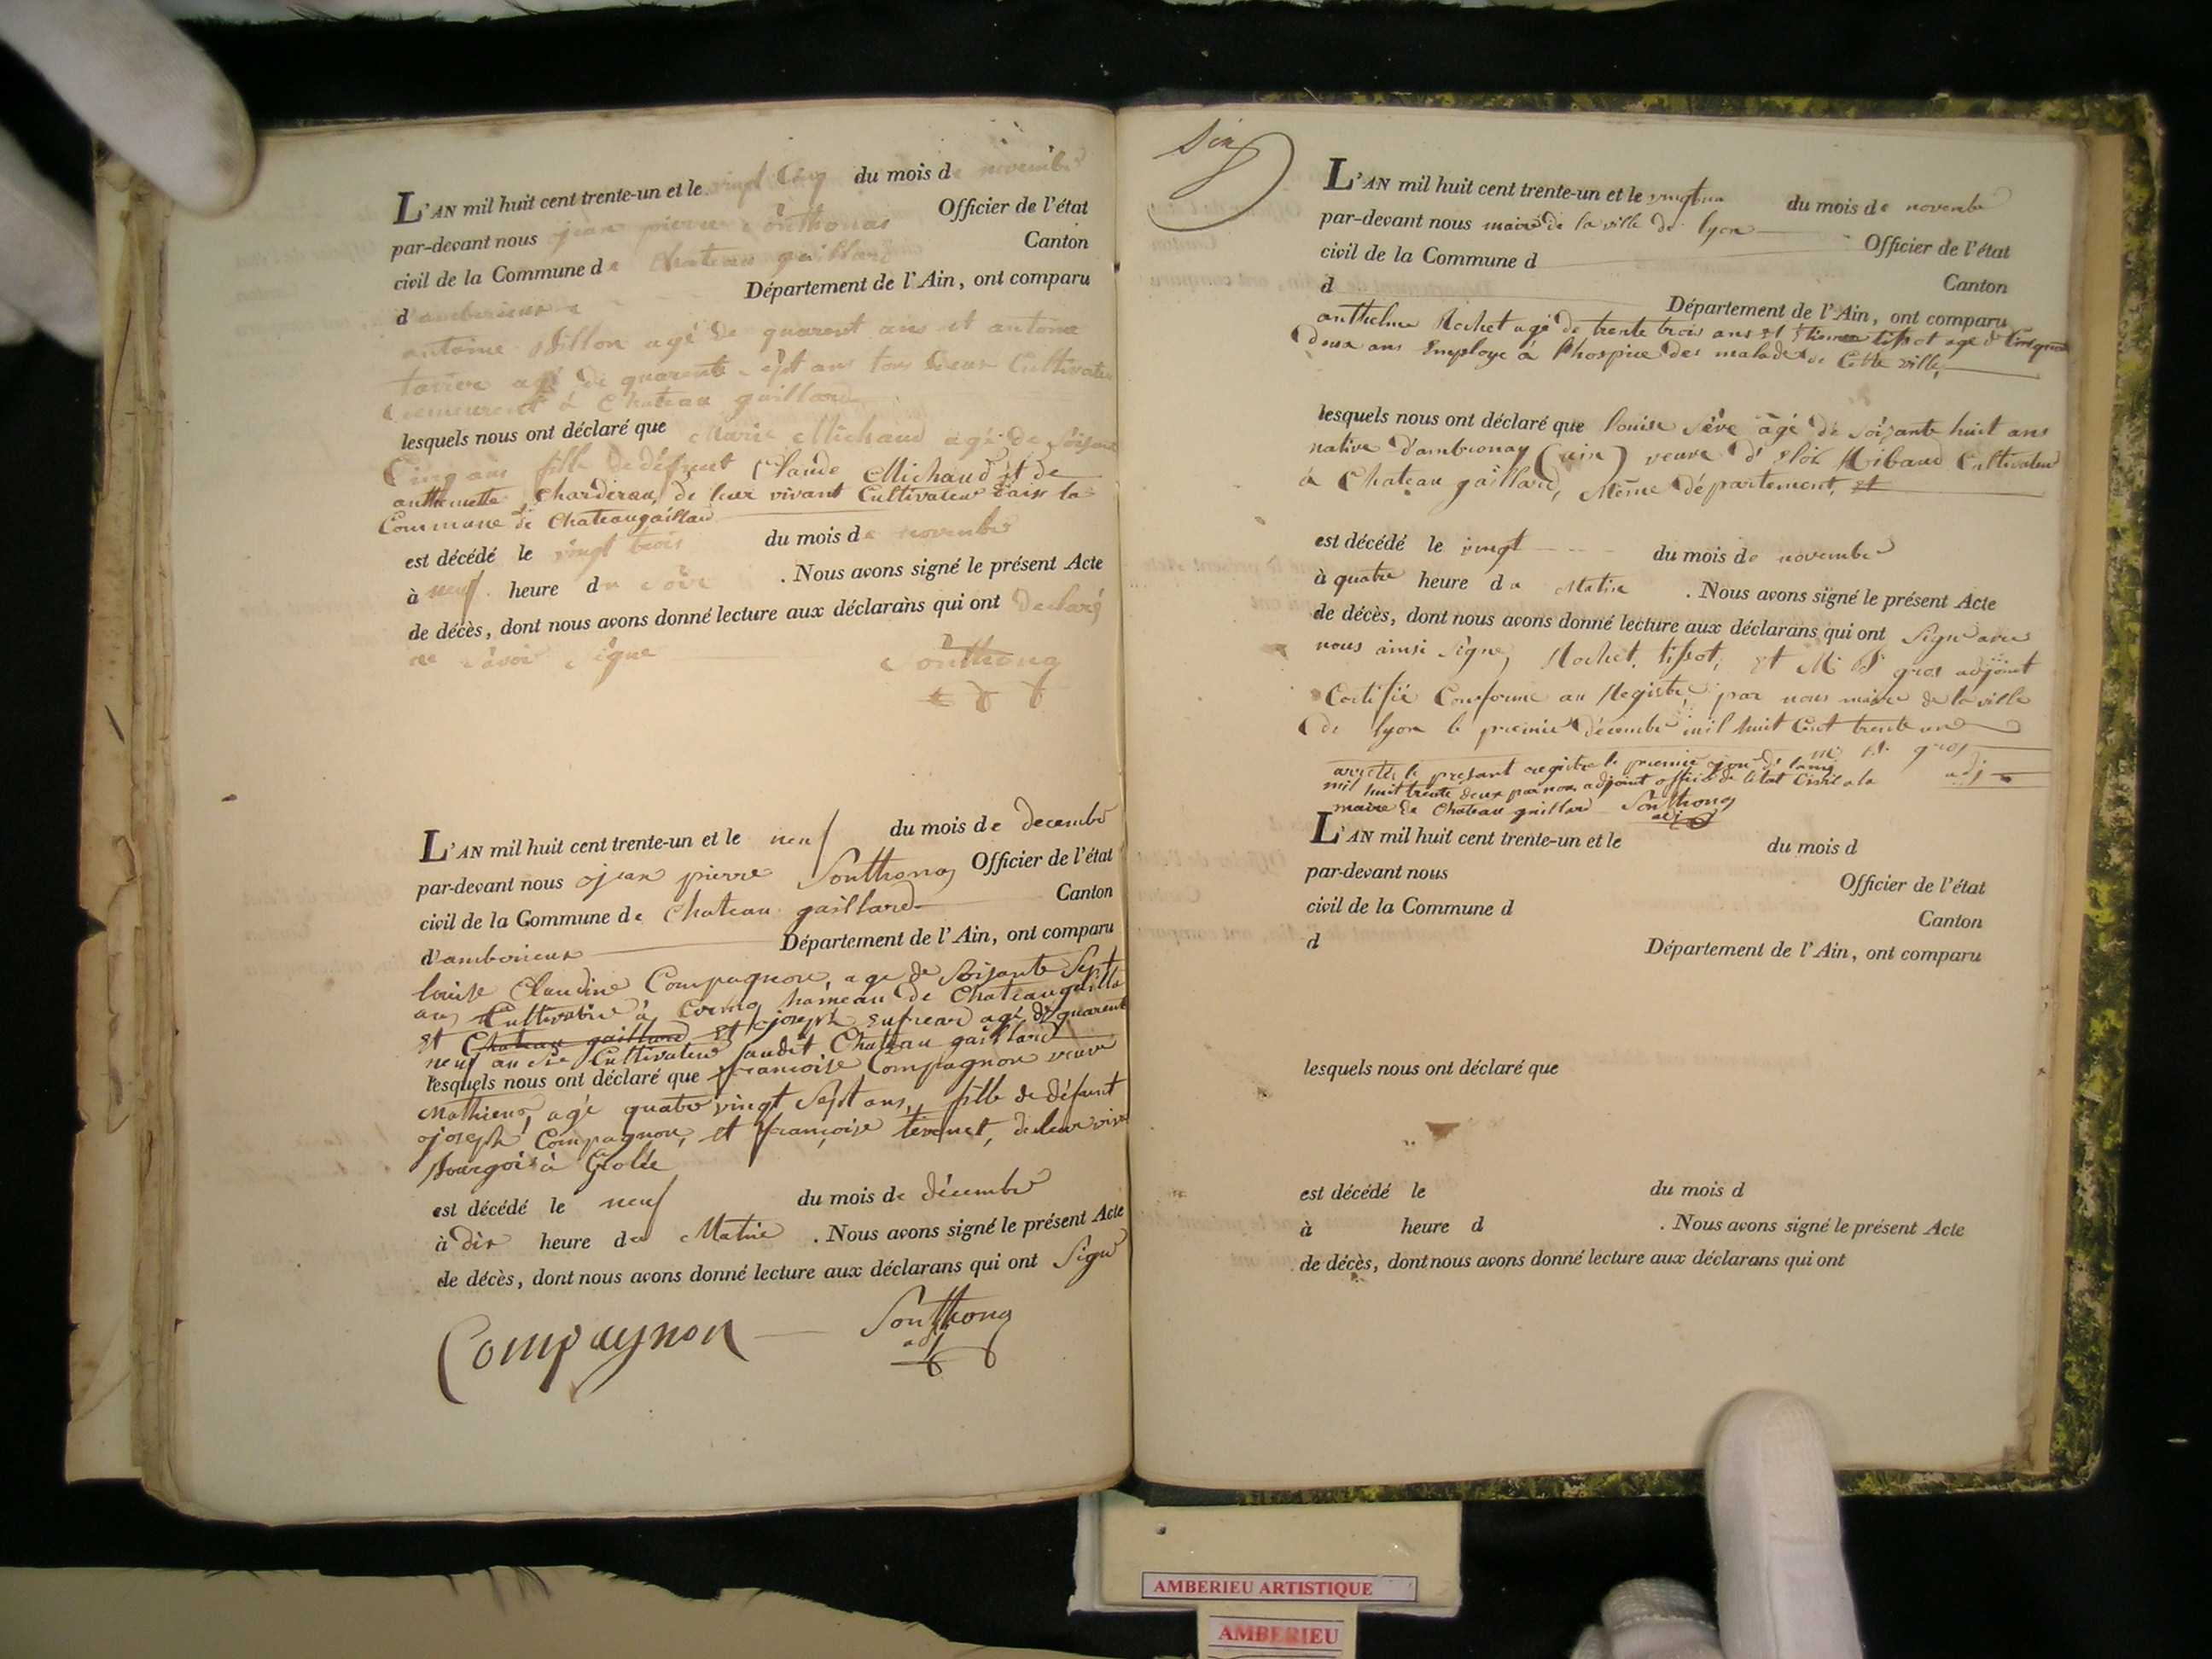 L'AN mil huit cent trente-un et le vingt Cinq du mois de novembre
par-devant nous jean pierre Sonthonas Officier de l'état
civil de la Commune de Chateau gaillard Canton
d'amberieux Département de l'Ain, ont comparu
antoine Billon agé de quarent ans et antoine
agé de quarente sept ans tous deux Cultivateur
demeurent à Chateau gaillard
lesquels nous ont déclaré que Marie Michaud agé de Soisante
Cinq ans fille de défunt Claude Michaud et de
anthemette Charderau, de leur vivant Cultivateur dans la
Commune de Chateaugaillard
est décédé le vingt trois du mois de novembre
à neuf heure du soir . Nous avons signé le présent Acte
de décès, dont nous avons donné lecture aux déclarans qui ont declaré
ne savoir signe Sonthonas
L'AN mil huit cent trente-un et le neuf du mois de decembre
par-devant nous jean pierre Sonthonas Officier de l'état
civil de la Commune de Chateau gaillard Canton
d'amberieux Département de l'Ain, ont comparu
louise Claudine Compagnon, age de Soisante Sept
ans Cultivatrice à Cormoz hameau de Chateaugailla
et Chateau gaillard et joseph agé de quarente
neuf an Cultivateur audit Chateau gaillard
lesquels nous ont déclaré que francoise Compagnon veuve
Mathieux, agé quatre vingt Sept ans, fille de défunt
joseph Compagnon, et françoise tevenet, de leur viva
Bourgois à Grolée
est décédé le neuf du mois de décembre
à dix heure du Matin . Nous avons signé le présent Acte
de décès, dont nous avons donné lecture aux déclarans qui ont Signé
Compagnon Sonthonas
adj
L'AN mil huit cent trente-un et le vingt un du mois de novembre
par-devant nous maire de la ville de lyon Officier de l'état
civil de la Commune d Canton
d Département de l'Ain, ont comparu
anthelme Rochet agé de trente trois ans et tissot agé de Cinquante
deux ans Employé à l'hospice des malades de Cette ville,
lesquels nous ont déclaré que louise Sève âgé de Soixante huit ans
native d'ambronay (ain) veuve d'Eloi Ribaud Cultivateur
à Chateau gaillard, Même département, et
est décédé le vingt du mois de novembre
à quatre heure du Matin . Nous avons signé le présent Acte
de décès, dont nous avons donné lecture aux déclarans qui ont Signé avec
nous ainsi Signé, Rochet, tissot, et M. gros adjoint
Certifié Conforme au Registre, par nous maire de la ville
de lyon le premier décembre mil huit Cent trente un
gros
adj
arretés le present registre le premier jour de lamg
mil huit trente deux par nous adjoint officier de l'état Civil a la
maire de Chateau gaillard Sonthonas
adj
L'AN mil huit cent trente-un et le du mois d
par-devant nous Officier de l'état
civil de la Commune d Canton
d Département de l'Ain, ont comparu
lesquels nous ont déclaré que
est décédé le du mois d
à heure d . Nous avons signé le présent Acte
de décès, dont nous avons donné lecture aux déclarans qui ont
AMBERIEU ARTISTIQUE
AMBERIEU